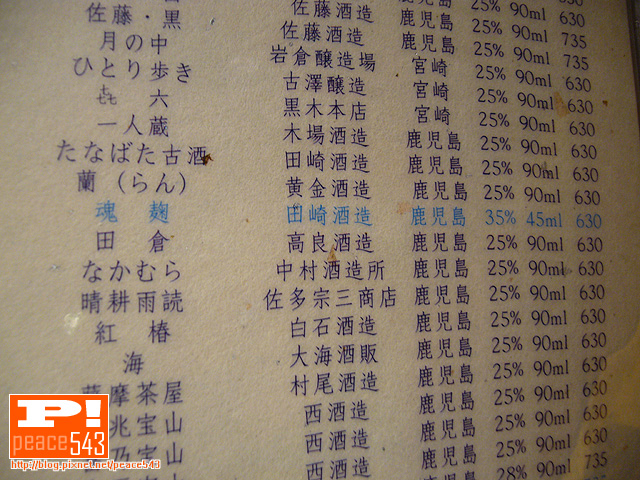 佐藤酒造 鹿児島 25% 90ml 735
佐藤・黒 佐藤酒造 鹿児島 25% 90ml 735
月の中 岩倉醸造場 宮崎 25% 90ml 630
ひとり歩き 古澤醸造 宮崎 25% 90ml 630
㐂六 黒木本店 宮崎 25% 90ml 630
一人蔵 木場酒造 鹿児島 25% 90ml 630
たなばた古酒 田崎酒造 鹿児島 25% 90ml 630
蘭（らん） 黄金酒造 鹿児島 25% 90ml 630
魂麹 田崎酒造 鹿児島 35% 45ml 630
田倉 高良酒造 鹿児島 25% 90ml 630
なかむら 中村酒造所 鹿児島 25% 90ml 630
晴耕雨読 佐多宗三商店 鹿児島 25% 90ml 630
紅椿 白石酒造 鹿児島 25% 90ml 630
海 大海酒販 鹿児島 25% 90ml 630
薩摩茶屋 村尾酒造 鹿児島 25% 90ml 630
兆宝山 西酒造 鹿児島 25% 90ml 630
乃宝山 西酒造 鹿児島 25% 90ml 630
西酒造 鹿児島 28% 90ml 735
P!
peace543
http://blog.pixnet.net/peace543